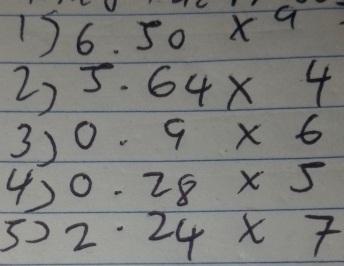 1) 6.50 x 9
2) 5.64 x 4
3) 0.9 x 6
4) 0.28 x 5
5) 2.24 x 7